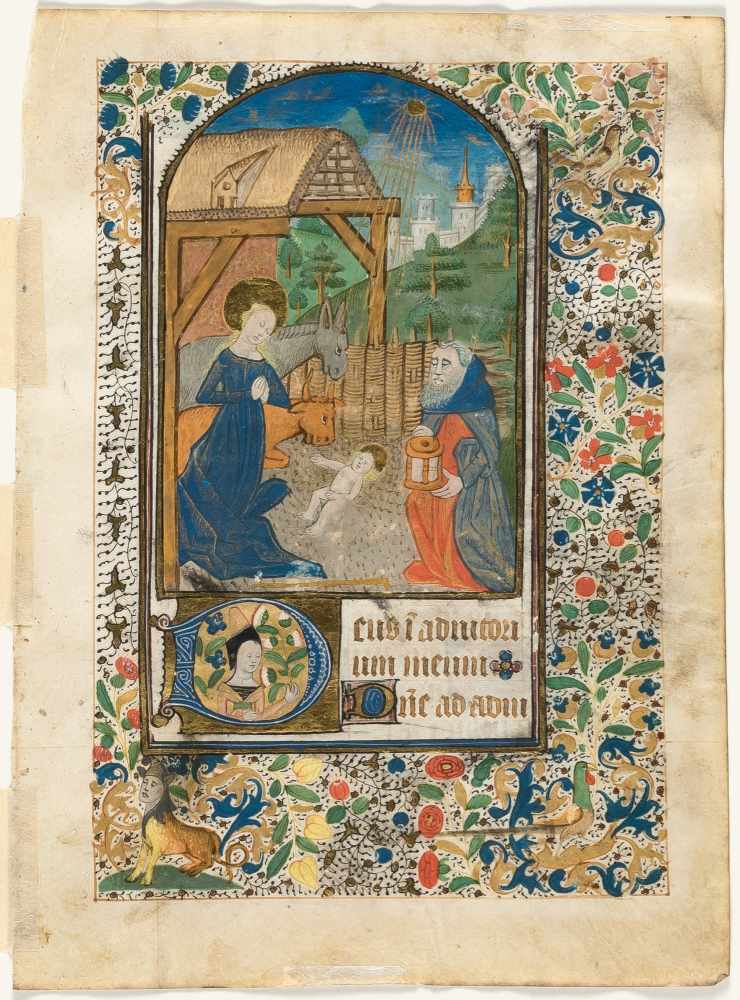 Deus ī adiutori
um meum
Dn̄e ad adiu